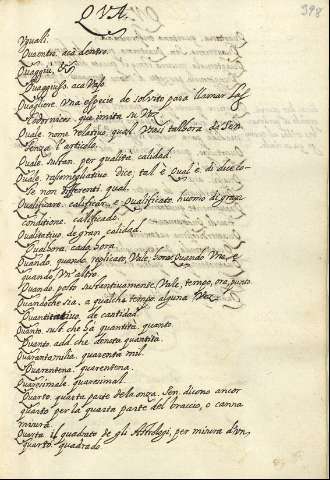 QVA.
398
Quali.
Quaentro. acà dentro.
Quaggiù.
Quaggiuso. aca Vaso.
Quagliere Vna especie de solvito para llamar las
Codornices que imita su Voz
Quale. nome relativo, qual. Vuàs talbora da Sen-
tenza l'articolo.
Quale. altan. per qualità. calidad.
Quale. rassomigliativo. Dice, tal è Qual è. di due co-
se non differenti. qual.
Qualificare. calificar. e Qualificato huomo di gran
conditione. calificado.
Qualitativo. de gran calidad.
Qualbora. cada hora.
Quando. quando. replicato, Vale, hora. Quando Vno, e
quando, Vn'altro.
Quando posto sustantivamente, Vale, tempo, ora, punto.
Quandoche sia. a qualche tempo. alguna Vez.
Quantitativo, de cantidad.
Quanto. sust. che ha quantità. quanto.
Quanto. add. che denota quantità.
Quarantamilia. quarenta mil.
Quarentena. quarentena.
Quaresimale. quaresmal.
Quarto. quarta parte de la onza. Sen. dicono ancor
quarto per la quarta parte del braccio, o canna
misura.
Quarta il quadrato de gli Astrologi, per misura d'vn
quarto. quadrado.